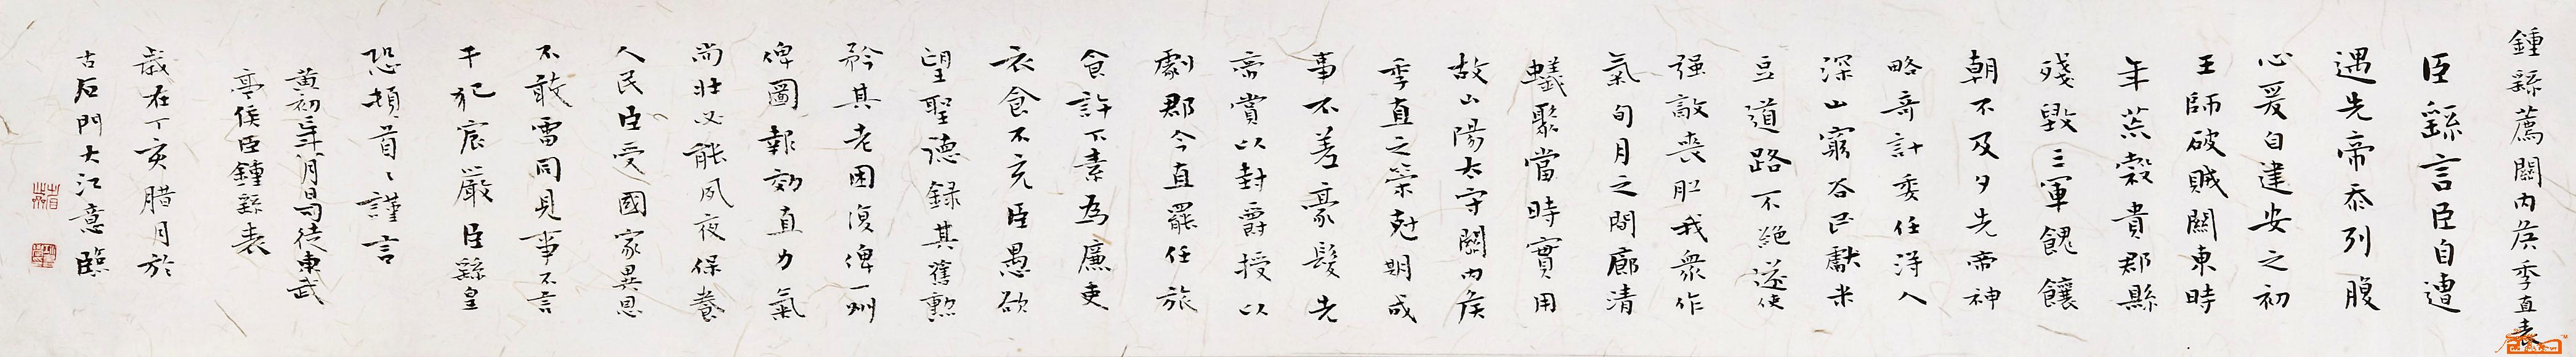 鍾繇薦關內侯季直表
臣繇言臣自遭
遇先帝忝列腹
心爰自建安之初
王師破賊關東時
年荒穀貴郡縣
殘毀三軍餽饟
朝不及夕先帝神
略奇計委任得人
深山窮谷民獻米
豆道路不絕遂使
強敵喪膽我眾作
氣旬月之間廓清
蟻聚當時實用
故山陽太守關內侯
季直之策剋期成
事不差豪髮先
帝賞以封爵授以
劇郡今直罷任旅
食許下素為廉吏
衣食不充臣愚欲
望聖德錄其舊勳
矜其老困復俾一州
俾圖報效直力氣
尚壯必能夙夜保養
人民臣受國家異恩
不敢雷同見事不言
干犯宸嚴臣繇皇
恐頓首〻謹言
黃初二年八月日司徒東武
亭侯臣鍾繇表
歲在丁亥腊月於
古石門大江意臨